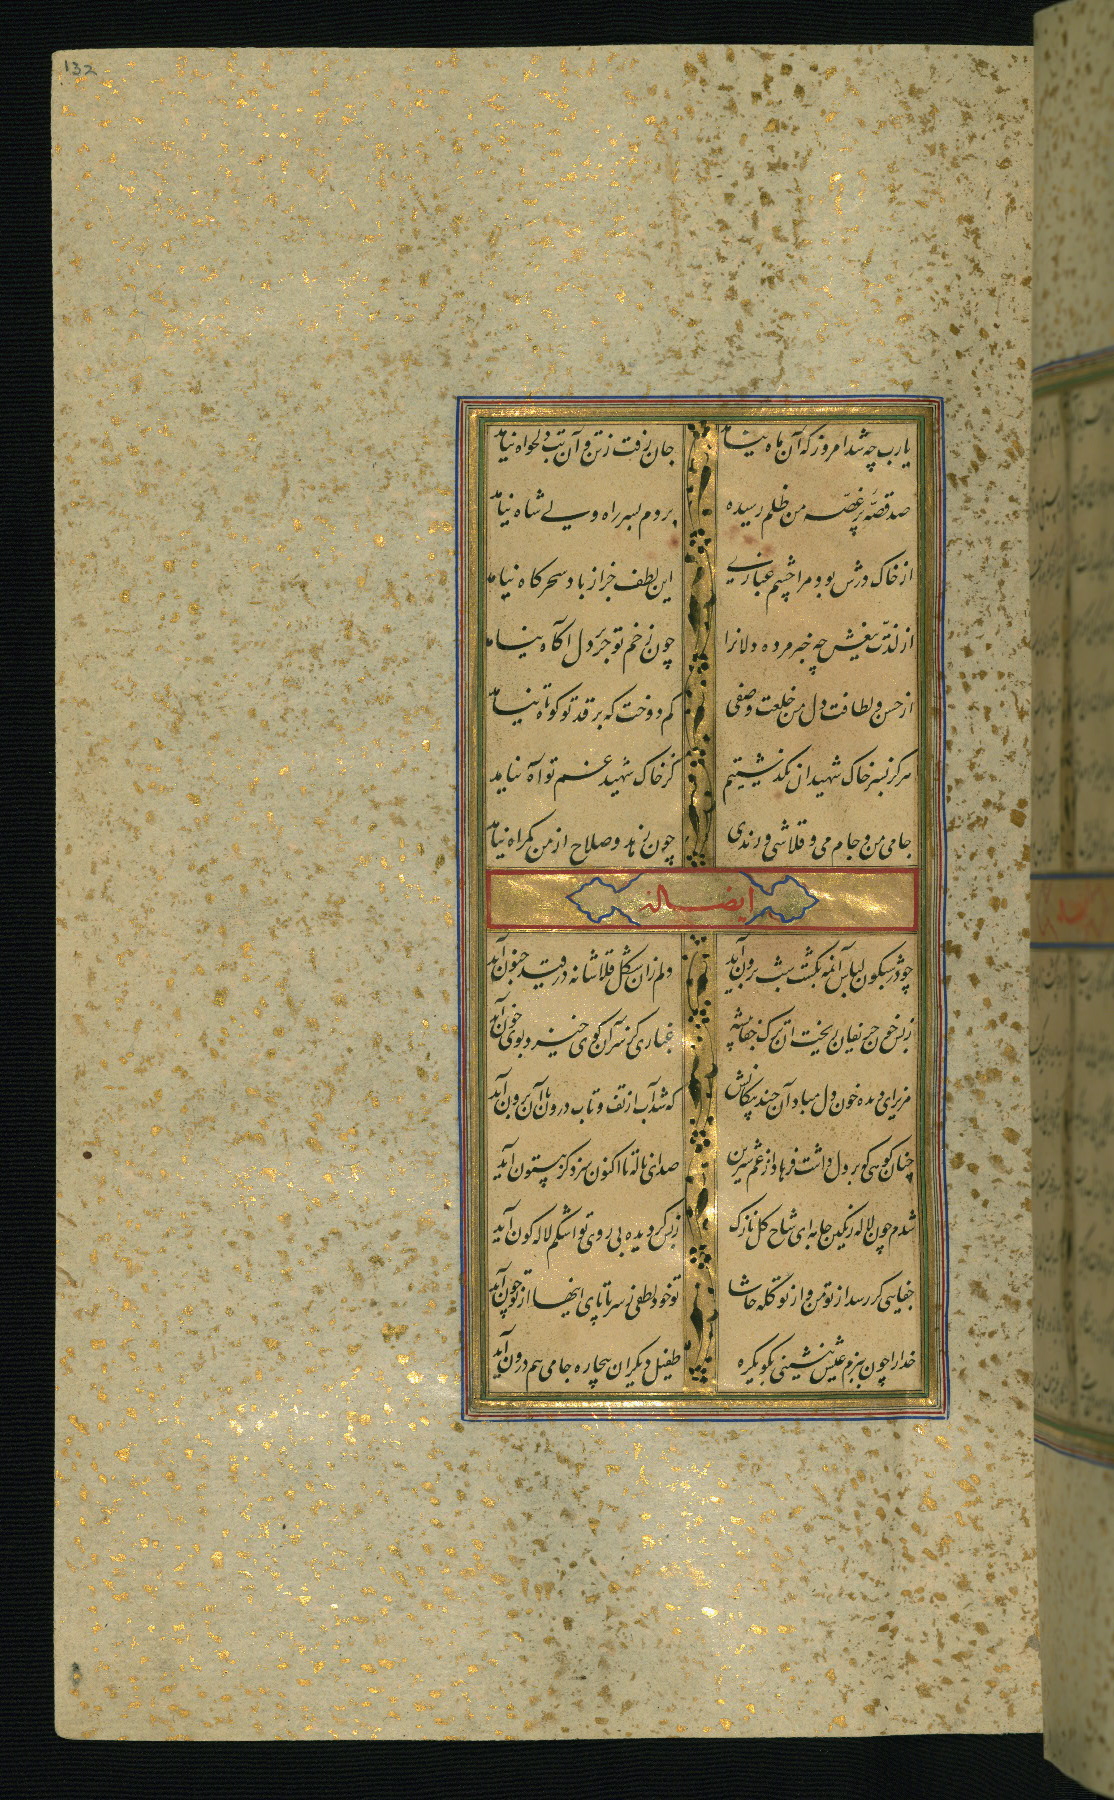 132
یارب چه شد امروز که آن ماه نیامد
جان رفت ز تن و آن بت دلخواه نیامد
صد قصّه پر غصّه من ظلم رسیده
بردم بسر راه ولی شاه نیامد
از خاک درش بود مرا چشم غباری
این لطف جز از باد سحرکاه نیامد
از لذّت تیغش چه خبر مرده دلانرا
چون زخم تو جز بر دل آکاه نیامد
از حسن و لطافت دل من خلعت وصفی
کم دوخت که بر قد تو کوتاه نیامد
هرکز بسر خاک شهیدان نکذشتیم
کز خاک شهید غم تو آه نیامد
جامی من و جام می و قلاشی و رندی
چون زهد و صلاح از من کمراه نیامد
ایضاله
چو در شبکون لباس آن مه بکشت شب برون آید
دلم زان شکل قلاشانه در قید جنون آید
ز بس خون حریفان ریخت آن ترک جفاپیشه
غباری کز سر آن کوی خیزد بوی خون آید
مریز ای دیده خون دل مباد آن چند پیکانش
که شد آب از تف و تاب درون با آن برون آید
چنان کوهی که بر دل داشت فرهاد از غم شیرین
صدای ناله تا اکنون سزد کز بیستون آید
شدم چون لاله رنکین جامه ای شاخ کل نازک
ز بس کز دیده بی روی تو اشکم لاله کون آید
جفایی کر رسد از تو من و از تو کله حاشا
تو خود لطفی ز سر تا پای اینها از تو چون آید
خدا را چون ببزم عیش بنشینی بکو یکره
طفیل دیکران بیچاره جامی هم درون آید